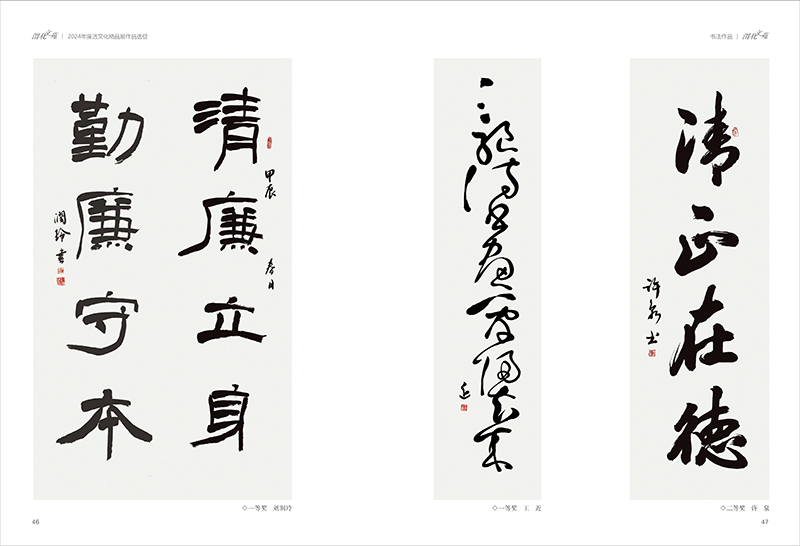 渭化文苑 | 2024年廉洁文化精品展作品选登
书法作品 | 渭化文苑
清廉立身
甲辰 春日
勤廉守本
润玲书
近
清正在德
许泉书
◇一等奖 刘润玲
◇一等奖 王 近
◇二等奖 许 泉
46
47